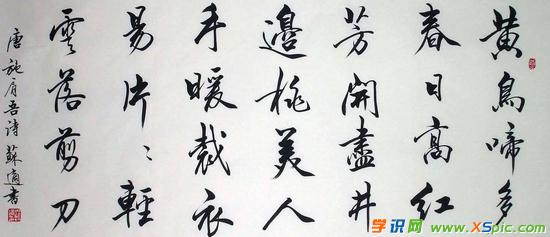 黄鳥啼多
春日高紅
芳開盡井
邊桃美人
手暖裁衣
易片〻輕
雲落剪刀
唐施肩吾詩 蘇適書
学识网
www.XSpic.com